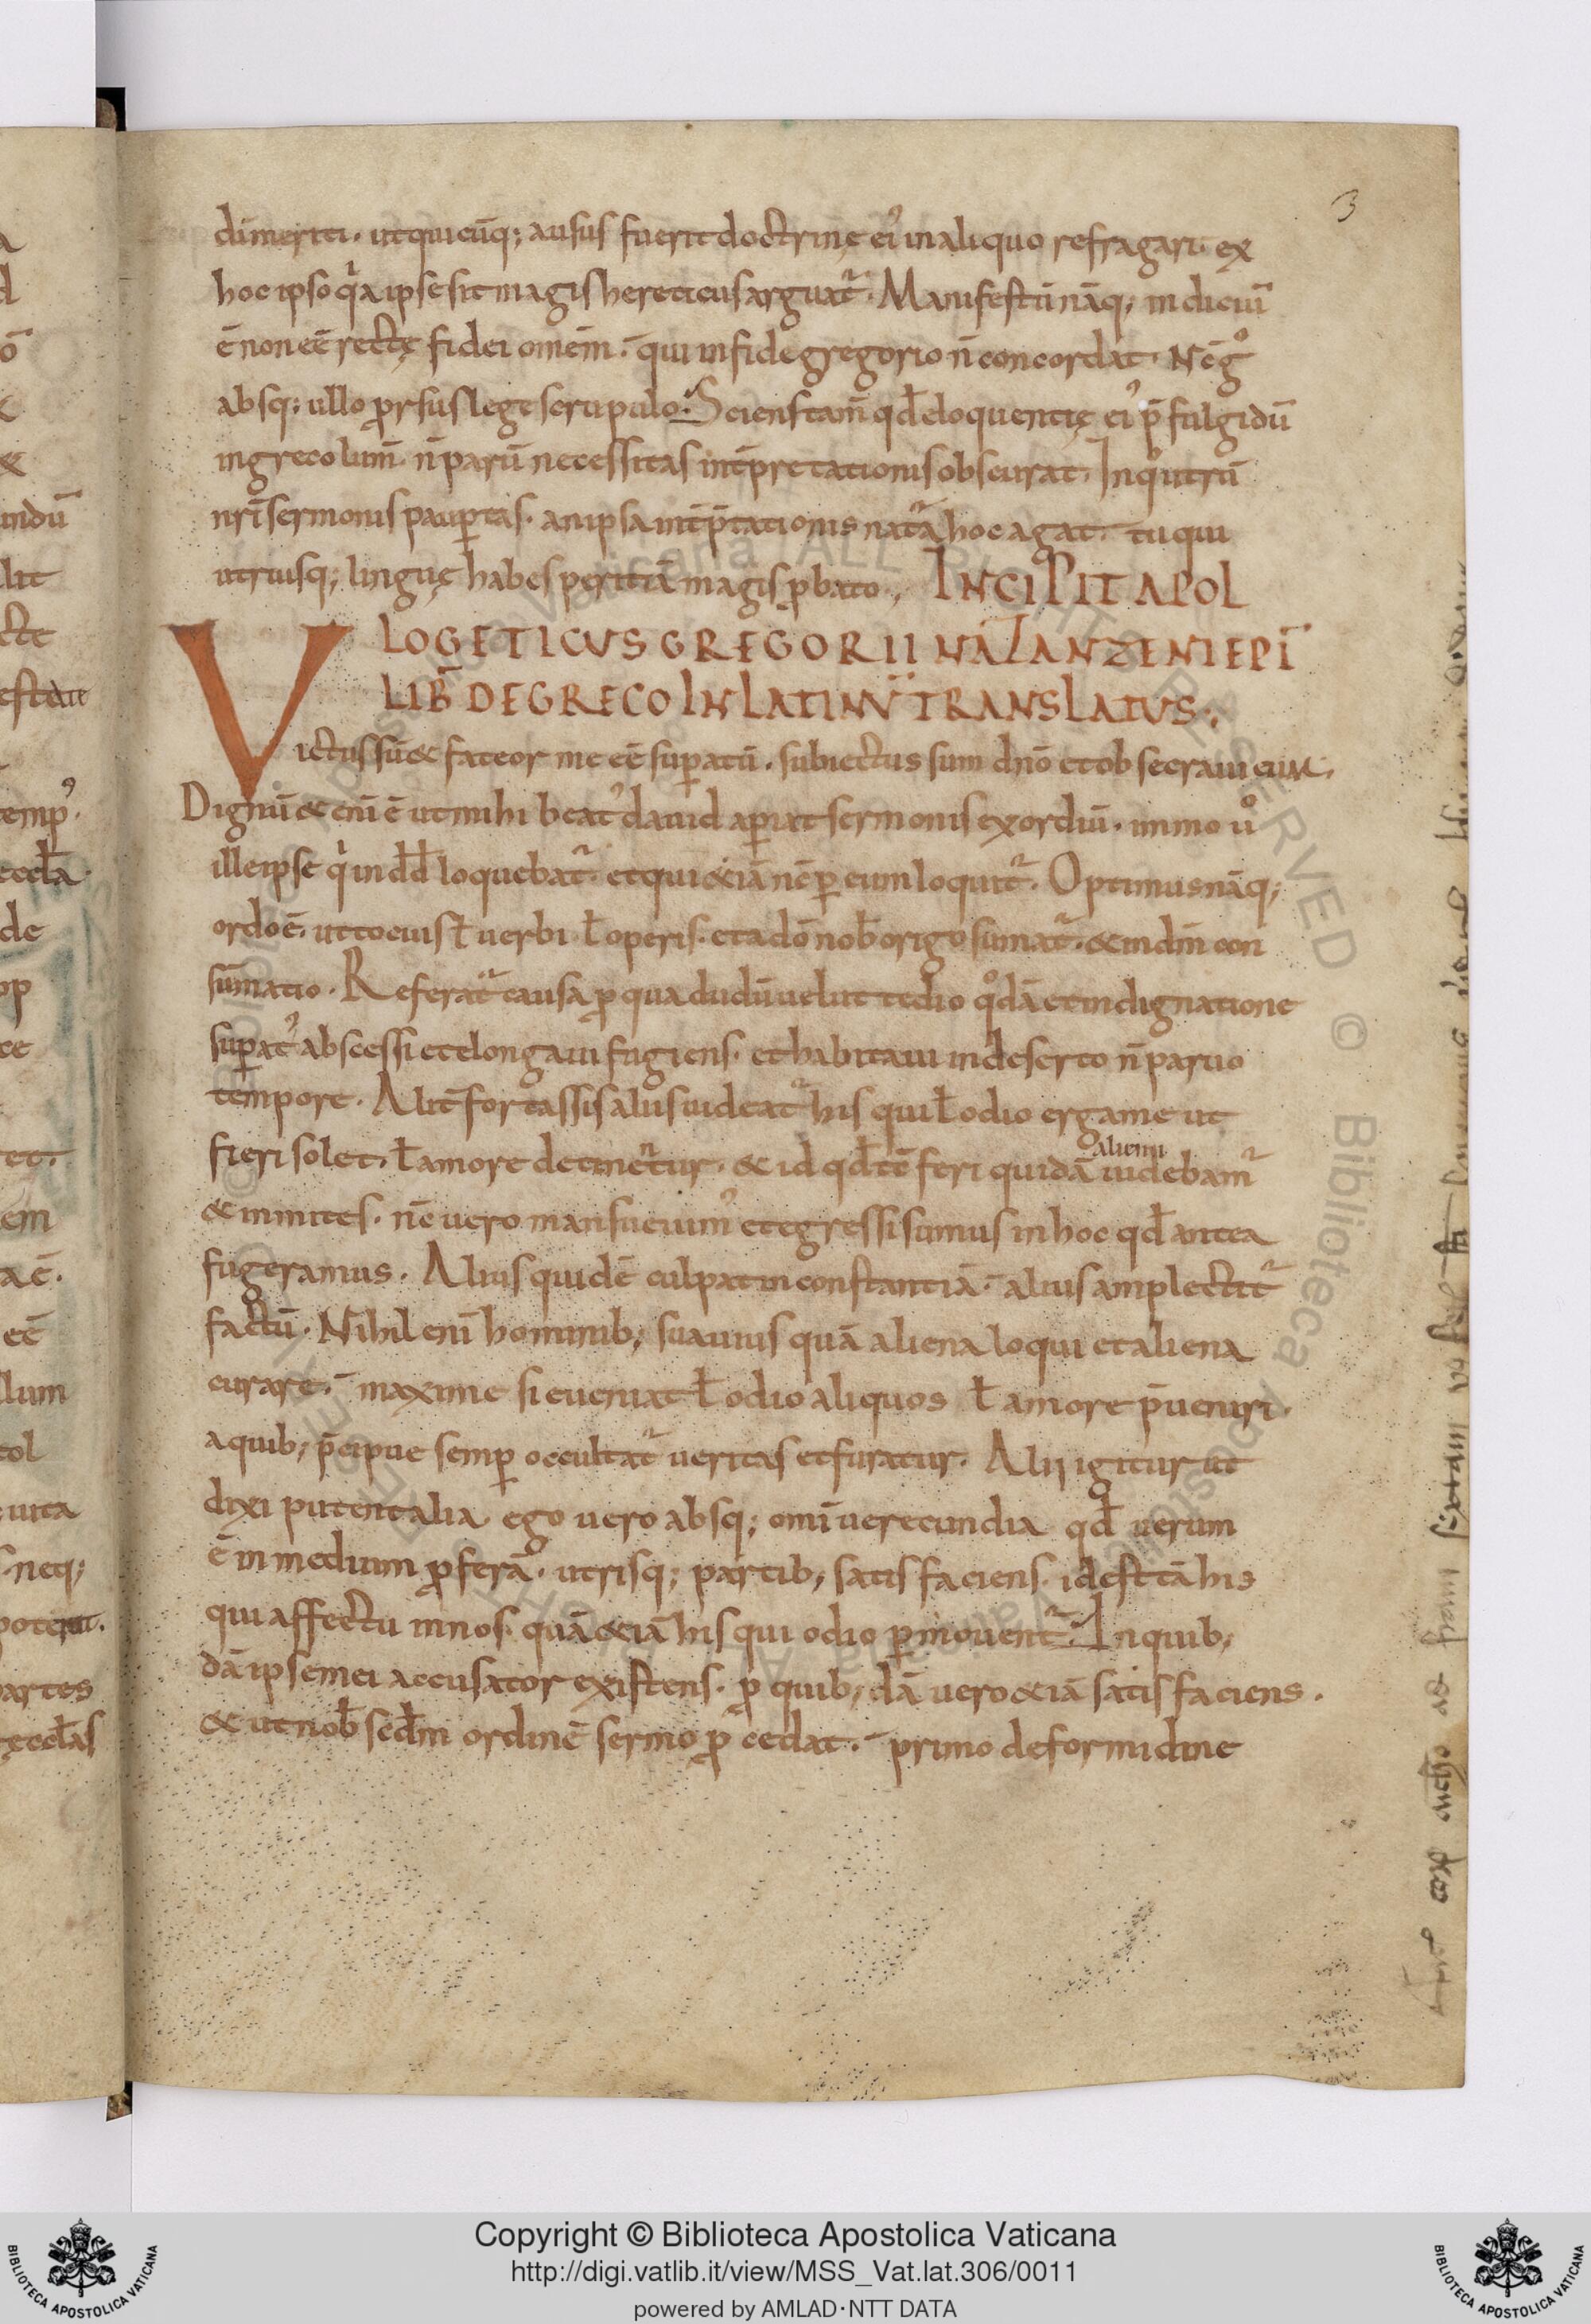 3
dī meriti. ut quicūq; ausus fuerit doctrinę ei᾿ in aliquo refragari. ex
hoc ipso qͥa ipse sit magis hereticus arguat᷑. Manifestū nāq; indiciū
ē non eē rectę fidei omēm. qui in fide gregorio n̄ concordat. Nc̄ gͦ
absq; ullo ꝓrsus lege scrupulo. Sciens tam̄ qd̄ eloquentię ei᾿ p̄fulgidū
in greco lum̄. n̄ parū necessitas int̄pretationis obscurat. In qͦ utrū
nr̄i sermonis pauꝑtas. an ipsa int̄p̄tationis nat᷑a hoc agat. tu qui
utriusq; linguę habes peritiā magis ꝓbato., INCIPIT APOL
LOGETICUS GREGORII NAZANZENI EPĪ
LIB̄ DE GRECO IN LATINŪ TRANSLATUS.,
Victus sū & fateor me eē suꝑatū. subiectus sum dn̄o et obsecraui eum.
Dignū & enī ē ut mihi beat᾿ dauid aꝑiat sermonis exordiū. immo uͦ
ille ipse qͥ in dd̄ loquebat᷑. et qui &iā nc̄ ꝑ eum loquit᷑. Optimus nāq;
ordo ē. ut tocius ł uerbi ł operis. et a dō nob̄ origo sumat᷑. & in dm̄ con
sūmatio. Referat᷑ causa ꝓ qua dudū uelut tedio qͦdā et indignatione
suꝑat᾿ abscessi et elongaui fugiens. et habitaui in deserto n̄ paruo
tempore. Alit̄ fortassis alius uideat᷑ his qui ł odio erga me ut
fieri solet. ł amore detinet᷑ur. & id qd̄ tē feri quidā uidebam᷑
alieni
& inmites. nc̄ uero mansueuim᾿ et egressi sumus in hoc qd̄ antea
fugeramus. Alius quidē culpat inconstantiā. alius amplectit᷑
factū. Nihil enī hominib; suauius quā aliena loqui et aliena
curare. maxime si eueniat ł odio aliquos ł amore p̄ueniri.
a quib; p̄cipue semꝑ occultat᷑ ueritas et furatur. Alii igitur ut
dixi putent alia ego uero absq; omī uerecundia qd̄ uerum
ē in medium ꝓferā. utrisq; partib; satisfaciens. id est tā his
qui affectu in nos. quā &iā his qui odio ꝑmouent᷑. In quib;
dā ipse mei accusator existens. ꝓ quib; dā uero &iā satisfaciens.
& ut nob̄ scd̄m ordinē sermo ꝓcedat. primo de formidine
Copyright © Biblioteca Apostolica Vaticana
http://digi.vatlib.it/view/MSS_Vat.lat.306/0011
powered by AMLAD·NTT DATA
BIBLIOTECA APOSTOLICA VATICANA
BIBLIOTECA APOSTOLICA VATICANA